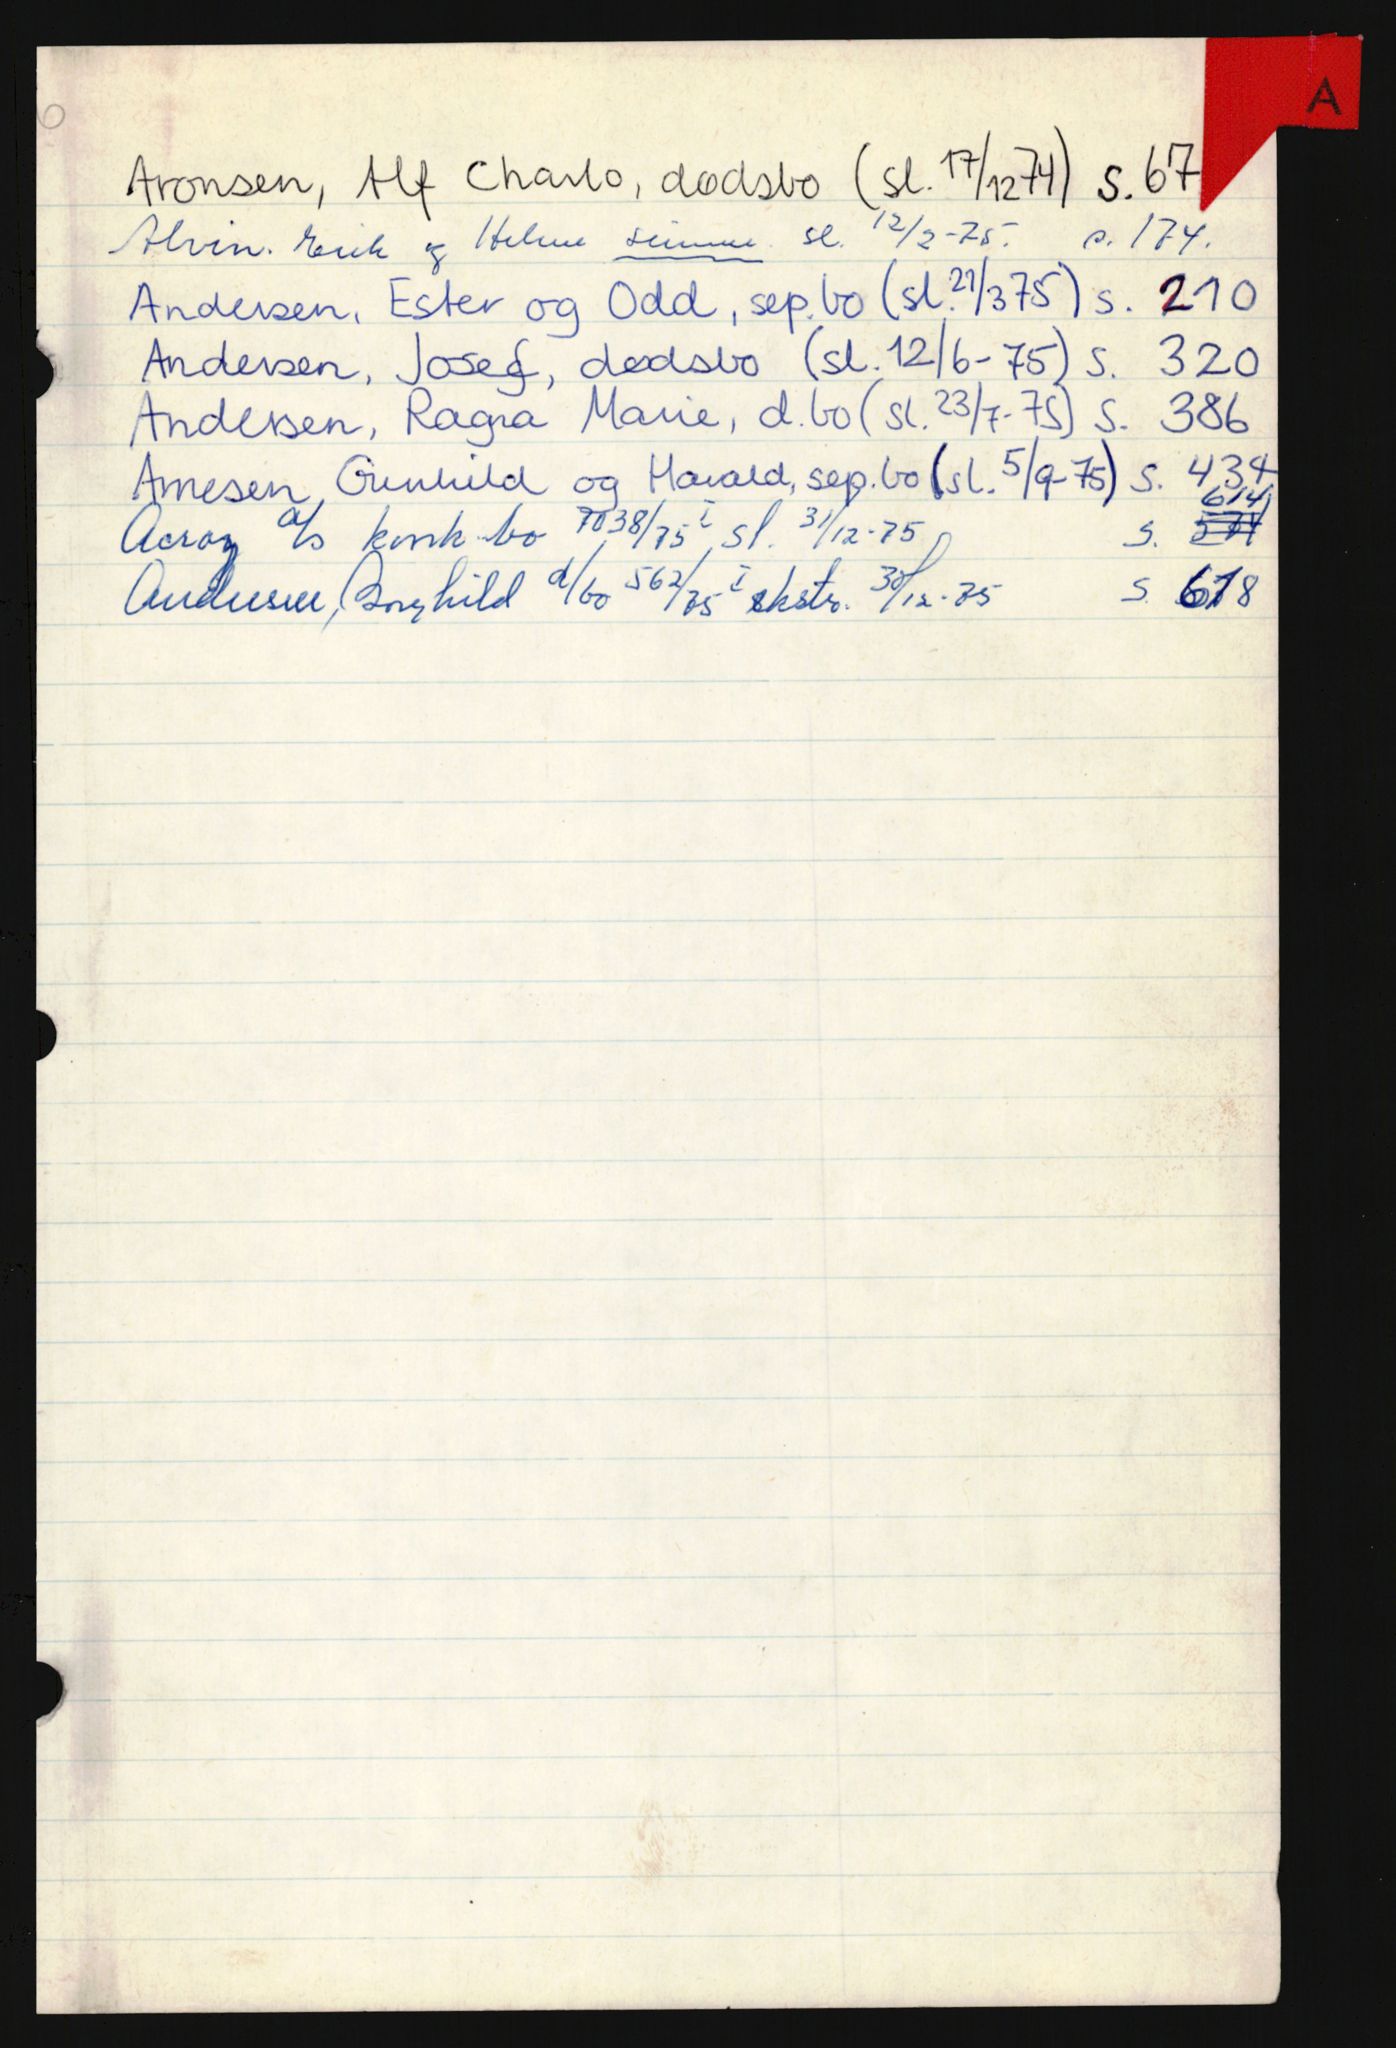 A
Aronsen, Alf Charlo, dødsbo (sl. 17/12 74) s. 67
Alvin. Erik og Helene sl. 12/2-75. s. 174.
Andersen, Ester og Odd, sep.bo (sl. 21/3 75) s. 210
Andersen, Josef, dødsbo (sl. 12/6-75) s. 320
Andersen, Ragna Marie, d.bo (sl. 23/7-75) s. 386
Arnesen, Gunhild og Harald, sep.bo (sl. 5/9-75) s. 434
614
a/s konk.bo 7038/75 I sl. 31/12-75 s.
Andersen, Borghild d/bo 562/75 I ekstr. 30/12-75 s. 618